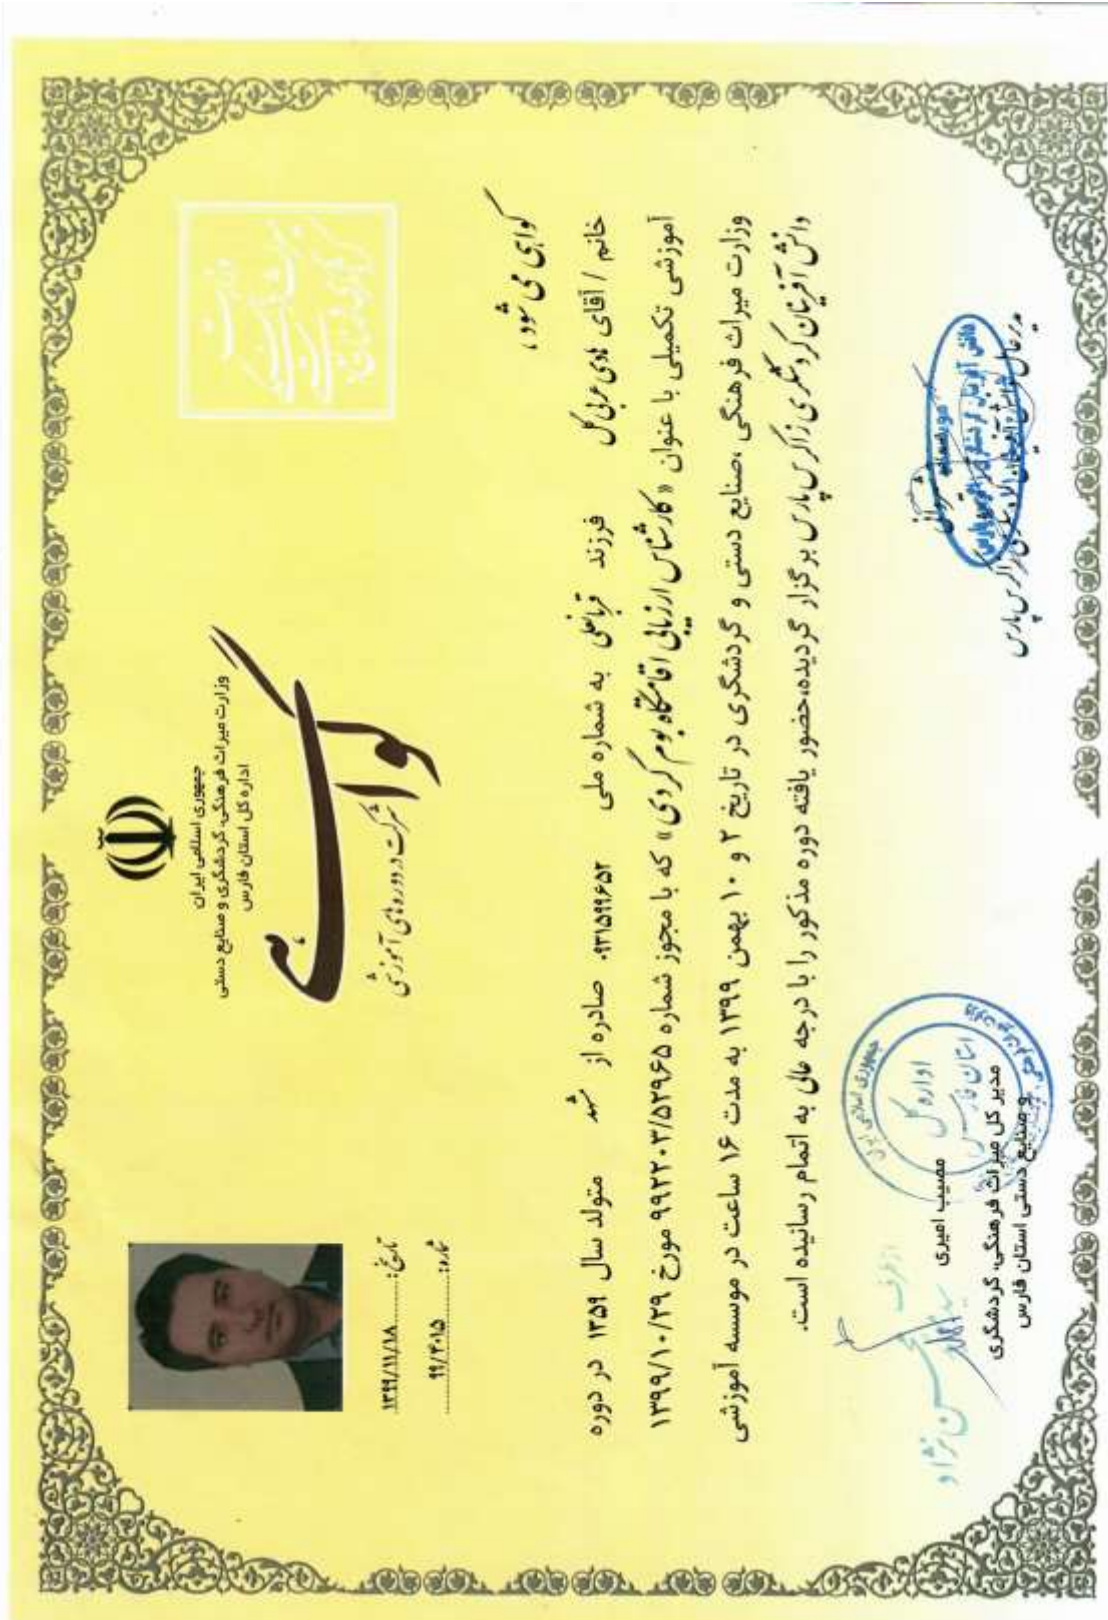 جمهوری اسلامی ایران
وزارت میراث فرهنگی، گردشگری و صنایع دستی
اداره کل استان فارس
گواهی
شرکت در دوره های آموزشی
تاریخ: ۱۳۹۹/۱۱/۱۸
شماره: ۹۹/۳۰۱۵
گواهی می شود،
خانم / آقای هادی عربی گل فرزند قربانعلی به شماره ملی ۰۹۳۱۵۹۹۶۵۲ صادره از مشهد متولد سال ۱۳۵۹ در دوره
آموزشی تکمیلی با عنوان «کارشناس ارزیابی اقامتگاه بوم گردی» که با مجوز شماره ۹۹۲۲۰۳/۵۲۹۶۵ مورخ ۱۳۹۹/۱۰/۲۹
وزارت میراث فرهنگی ،صنایع دستی و گردشگری در تاریخ ۲ و ۱۰ بهمن ۱۳۹۹ به مدت ۱۶ ساعت در موسسه آموزشی
دانش آفرینان گردشگری زاگرس پارس برگزار گردیده،حضور یافته دوره مذکور را با درجه عالی به اتمام رسانیده است.
مصیب امیری
مدیر کل میراث فرهنگی، گردشگری
و صنایع دستی استان فارس
جمهوری اسلامی ایران
اداره کل
استان فارس
دانش آفرینان گردشگری زاگرس پارس